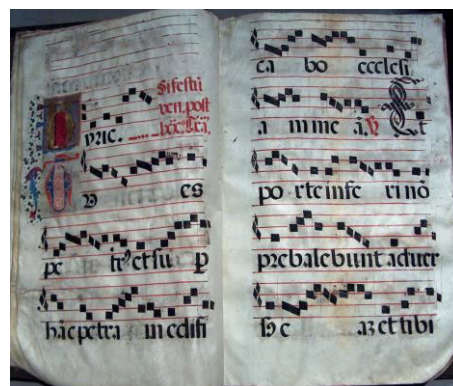 Si festū
ven. post
yrie.
v es
pe trꝰ et su p
hāc petra m edifi
ca bo ecclesi
a m me ā. ℣ Et
po rte infe ri nō
prebalebunt aduer
et tibi